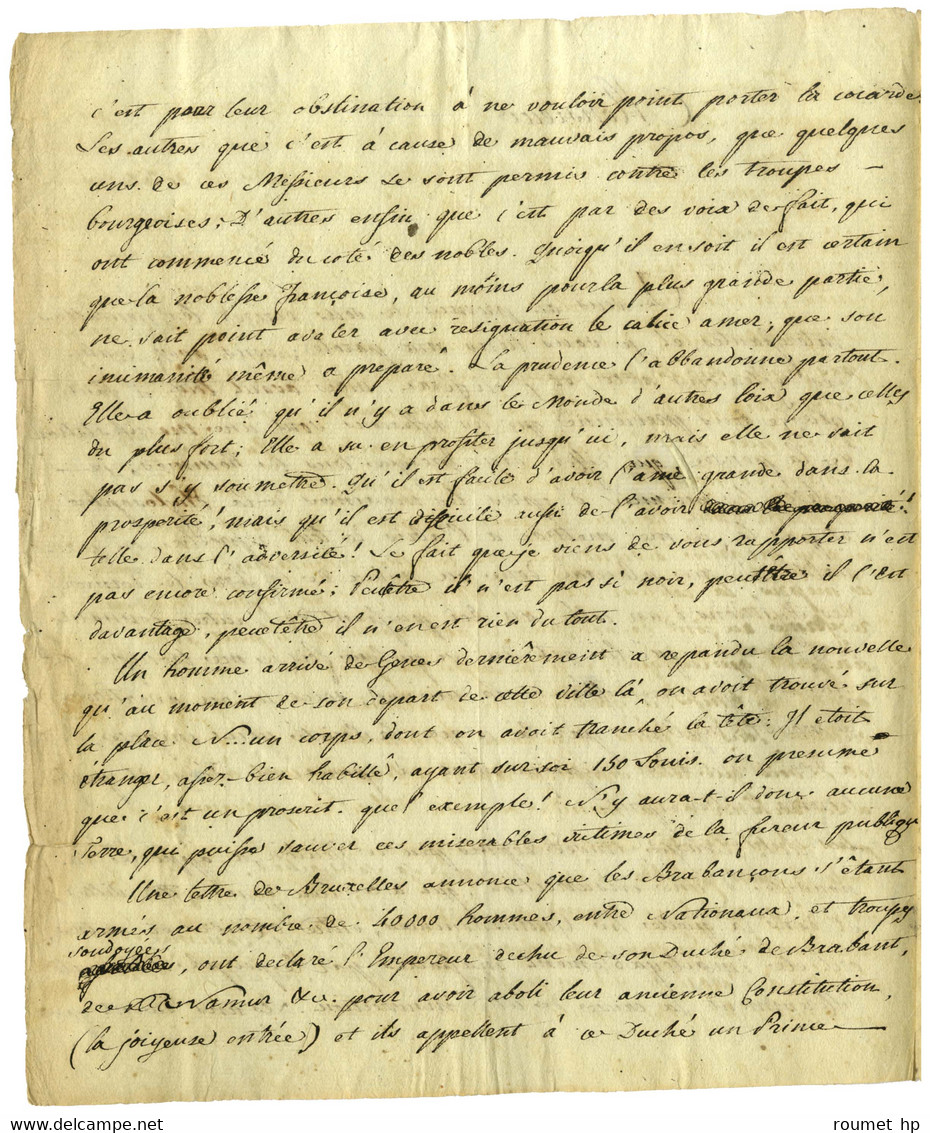 c'est pour leur obstination á ne vouloir point porter la cocarde.
Les autres que c'est á cause de mauvais propos, que quelques
uns de ces Messieurs se sont permis contre les troupes –
bourgeoises; D'autres enfin que c'est par des voix de fait, qui
ont commencé du coté des nobles. Quoiqu'il en soit il est certain
que la noblesse françoise, au moins pour la plus grande partie,
ne sait point avaler avec resignation le calice amer, que son
inimanité même a preparé. La prudence l'abbandonne partout.
Elle a oublié qu'il n'y a dans le Monde d'autres loix que celles
du plus fort; Elle a su en profiter jusqu'ici, mais elle ne sait
pas s'y soumettre. Qu'il est facile d'avoir l'ame grande dans la
prosperité! mais qu'il est difficile aussi de l'avoir
telle dans l'adversité! Le fait que je viens de vous rapporter n'est
pas encore confirmé; Peutêtre il n'est pas si noir, peutêtre il l'est
davantage, peutêtre il n'en est rien du tout.
Un homme arrivé de Genes dernièrement a repandu la nouvelle
qu'au moment de son depart de cette ville là on avoit trouvé sur
la place N... un corps, dont on avoit tranché la tête: Il etoit
étranger, assez-bien habillé, ayant sur soi 150 Louis. on presume
que c'est un proscrit. quel exemple! N'y aura-t-il donc aucune
Terre, qui puisse sauver ces miserables victimes de la fureur publique
Une lettre de Bruxelles annonce que les Brabançons s'étant
armés au nombre de 40000 hommes, entre Nationaux, et troupes
soudoyées, ont declaré l'Empereur dechu de son Duché de Brabant,
de Namur &c. pour avoir aboli leur ancienne Constitution,
(la joiyeuse entrée) et ils appellent á ce Duché un Prince
www.delcampe.net
roumet hp